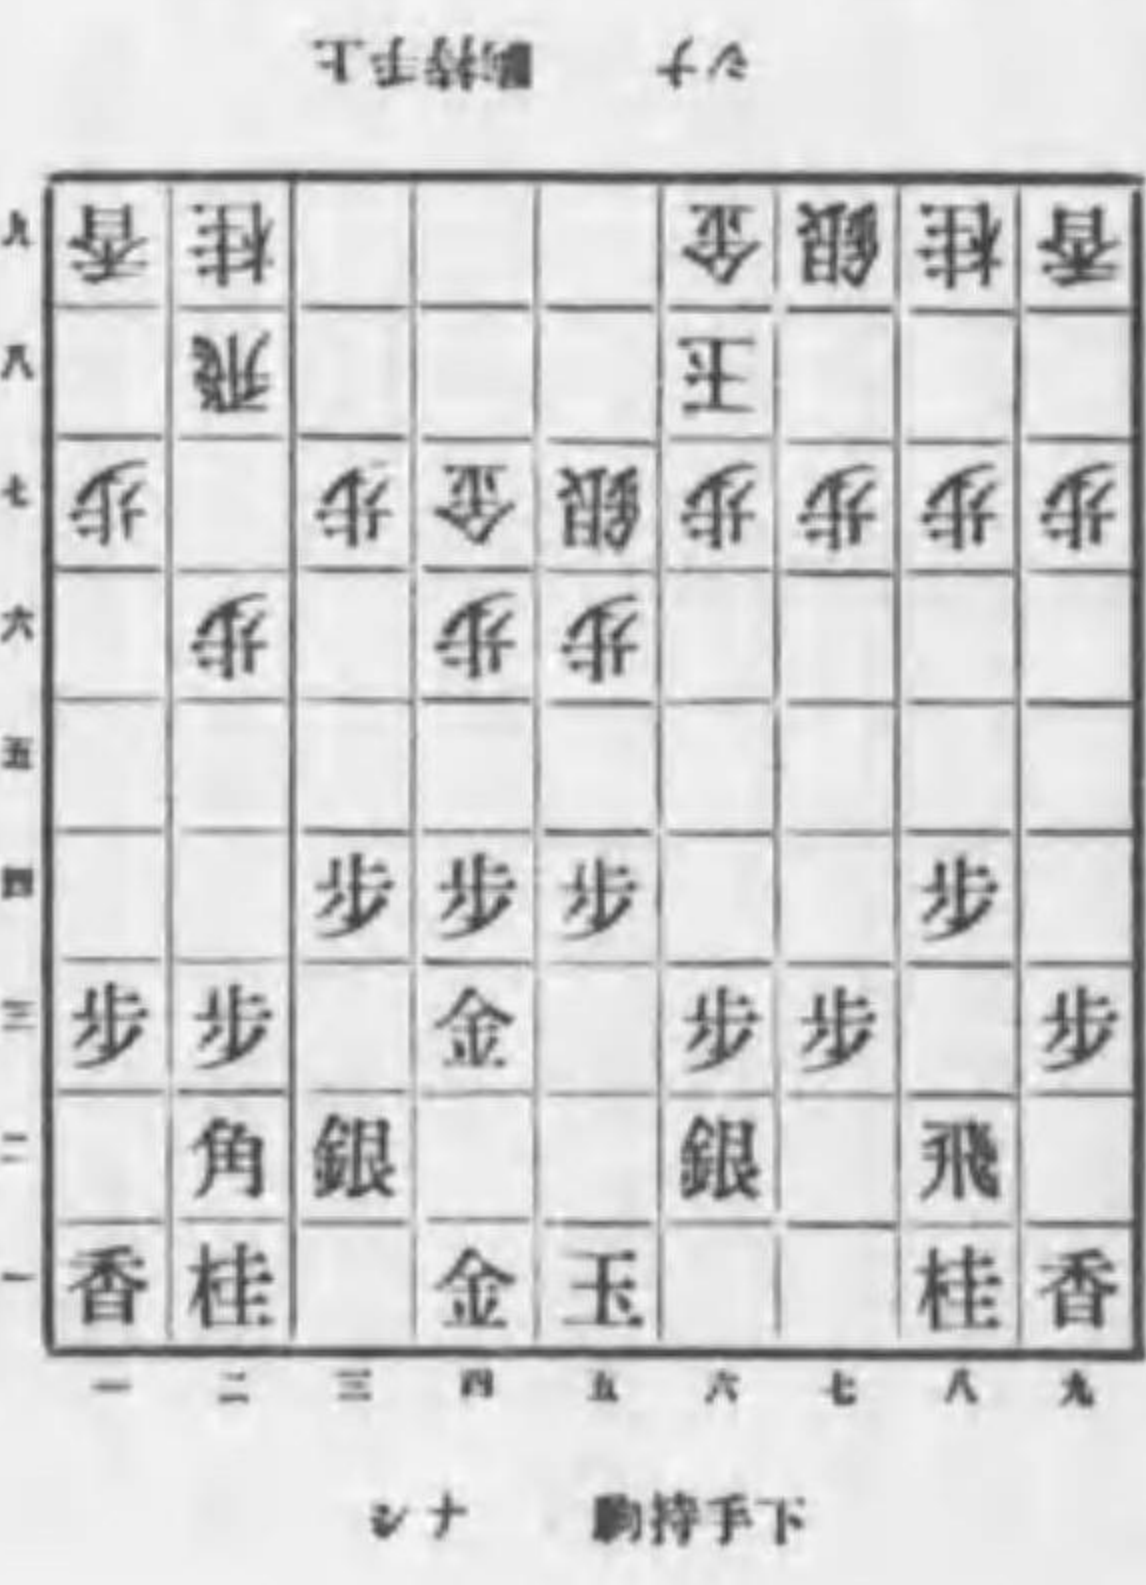 上手持駒 ナシ
九 香 桂 金 銀 桂 香
八 飛 玉
七 歩 歩 金 銀 歩 歩 歩 歩
六 歩 歩 歩
五
四 歩 歩 歩 歩
三 歩 歩 金 歩 歩 歩
二 角 銀 銀 飛
一 香 桂 金 玉 桂 香
一 二 三 四 五 六 七 八 九
下手持駒 ナシ